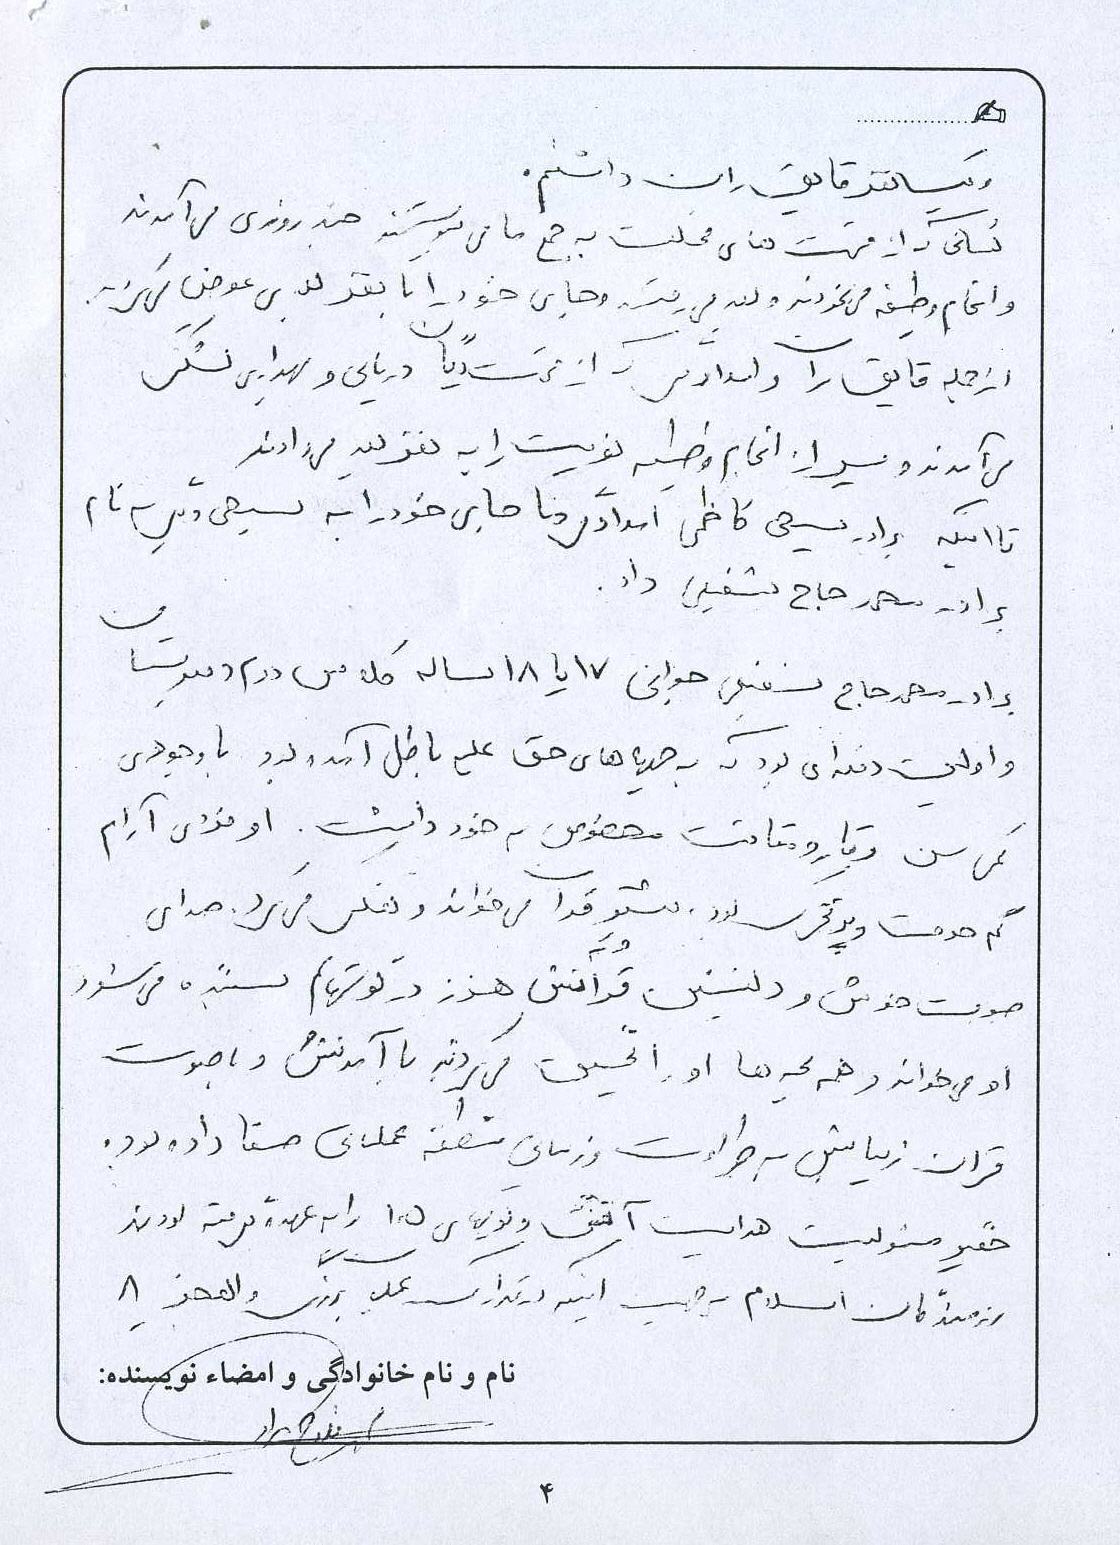 و یک نفر قایق ران داشتم.
کسانی که از قسمت های مختلف به جمع ما می پیوستند چند روزی می آمدند
و انجام وظیفه می نمودند و بعد می رفتند و جای خود را با نفر بعدی عوض می کردند
از جمله قایق ران و امدادگر که از قسمت یگان دریایی و بهداری لشگر
می آمدند و پس از انجام وظیفه نوبت را به نفر بعد می دادند
تا اینکه برادر بسیجی کاظمی امدادگر ما جای خود را به بسیجی دیگر به نام
برادر محمد حاج شفیعی داد.
برادر محمد حاج شفیعی جوانی ۱۷ یا ۱۸ ساله کلاس دوم دبیرستان
و اولین دفعه ای بود که به جبهه های حق علیه باطل آمده بود با وجودی
کمی سن وقار و متانت مخصوص به خود داشت. او فردی آرام
کم صحبت و پر تحرک بود. بیشتر قرآن می خواند و تفکر می کرد. صدای
صوت خوش و دلنشین قرآنش هنوز در گوشهایم شنیده می شود
او می خواند و همه بچه ها او را تحسین می کردند با آمدنش و با صوت
قرآن زیبایش به طراوت و زیبایی منطقه عملیاتی صفا داده بود.
حقیر مسئولیت هدایت آتش و توپهای ۱۰۵ را به عهده گرفته بودم
رزمندگان اسلام به جهت اینکه در تدارک عملیات بزرگ والفجر ۸
نام و نام خانوادگی و امضاء نویسنده:
۴